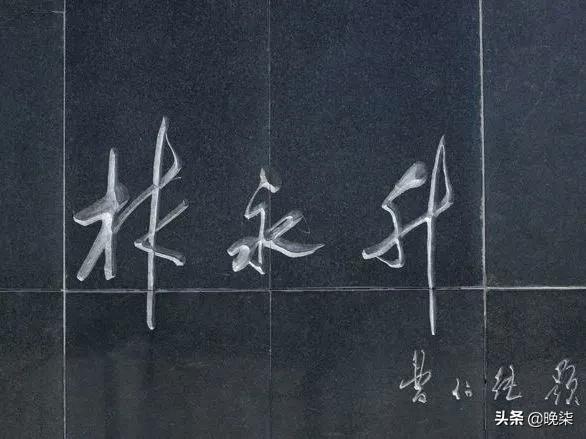 林永升
曹仁题
头条 @晚柒